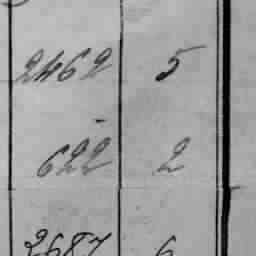 2462 5
622 2
2687 6